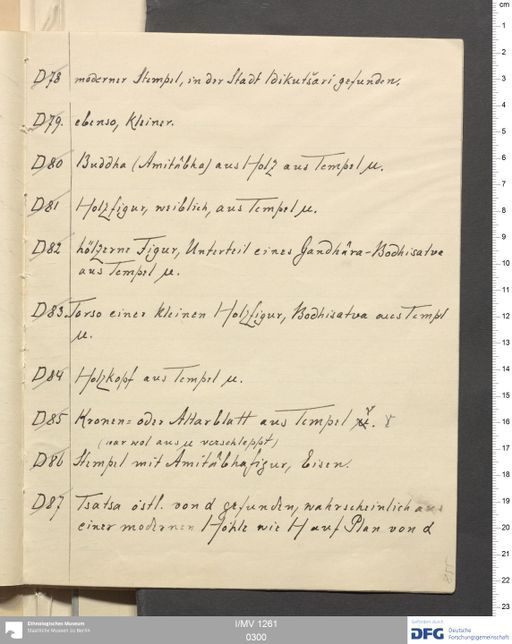 D78 moderner Stempel, in der Stadt Idikutšari gefunden.
D79. ebenso, kleiner.
D80 Buddha (Amitâbha) aus Holz aus Tempel µ.
D81 Holzfigur, weiblich, aus Tempel µ.
D82 hölzerne Figur, Unterteil eines Gandhâra-Bodhisatva
aus Tempel µ.
D83. Torso einer kleinen Holzfigur, Bodhisatva aus Templ
µ.
D84 Holzkopf aus Tempel µ.
D85 Kronen= oder Altarblatt aus Tempel γ. γ
(war wol aus µ verschleppt)
D86 Stempel mit Amitâbhafigur, Eisen.
D87 Tsatsa östl. von α gefunden, wahrscheinlich aus
einer modernen Höhle wie H auf Plan von α
cm
1
2
3
4
5
6
7
8
9
10
11
12
13
14
15
16
17
18
19
20
21
22
23
Ethnologisches Museum
Staatliche Museen zu Berlin
I/MV 1261
0300
Gefördert durch
DFG Deutsche
Forschungsgemeinschaft